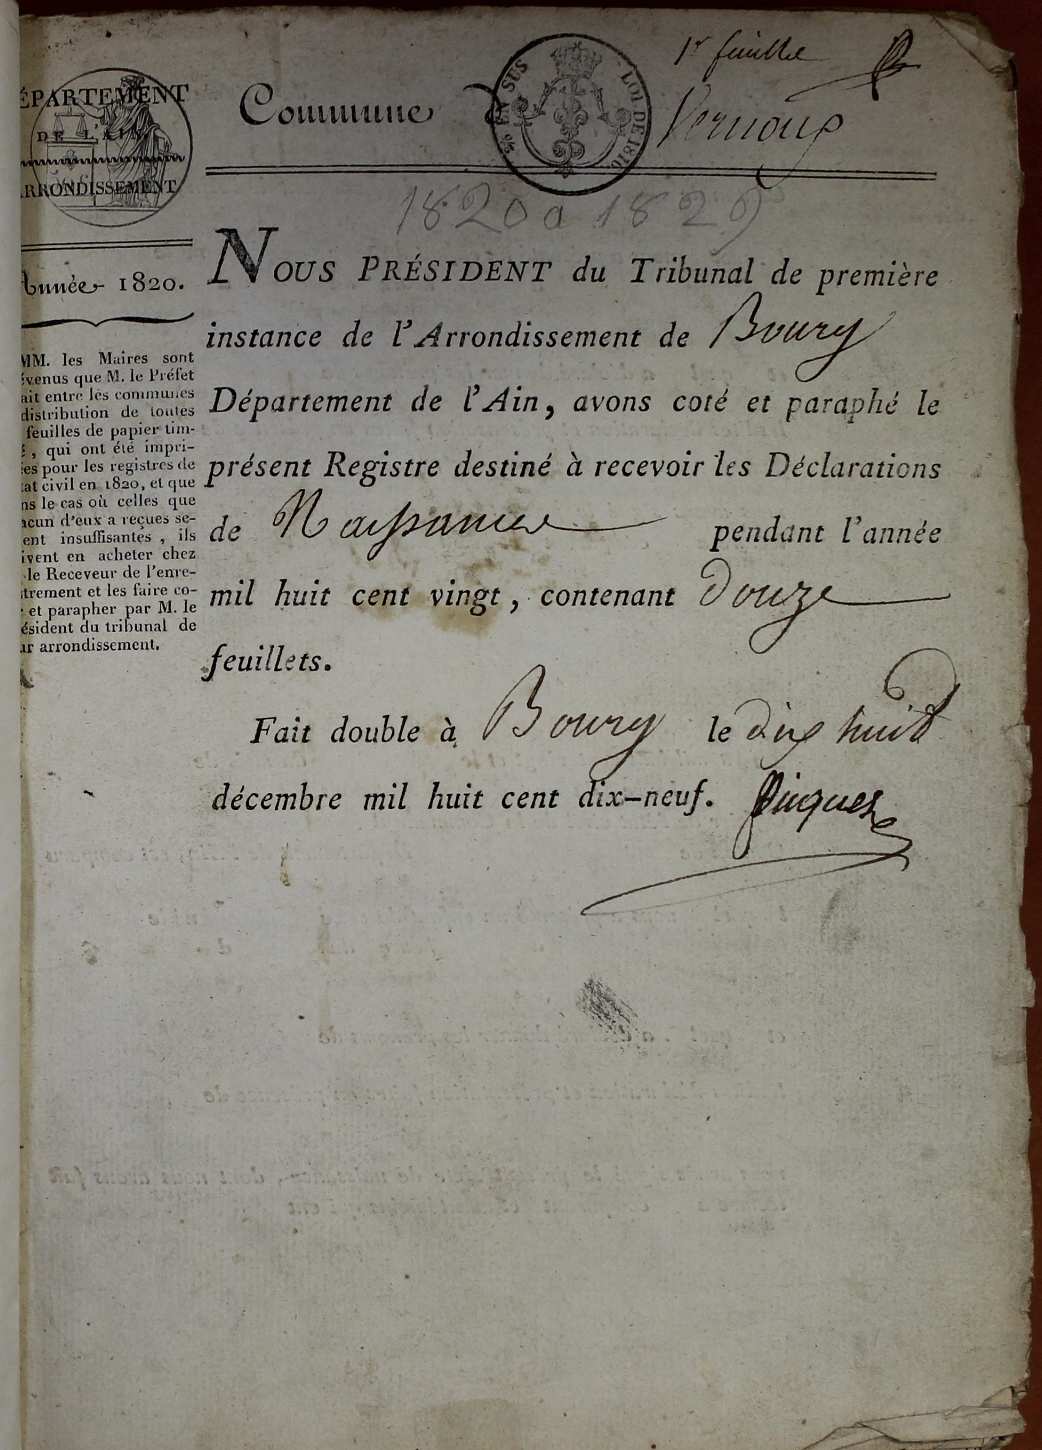 1r feuillet
DÉPARTEMENT
DE L'AIN
ARRONDISSEMENT
Commune de Vernoux
25 EN SUS
LOI DE 1816
1820 a 1829
Année 1820.
MM. les Maires sont
évenus que M. le Préfet
ait entre les communes
distribution de toutes
feuilles de papier tim-
é, qui ont été impri-
es pour les registres de
tat civil en 1820, et que
ns le cas où celles que
acun d'eux a reçues se-
ent insuffisantes, ils
ivent en acheter chez
le Receveur de l'enre-
trement et les faire co-
r et parapher par M. le
ésident du tribunal de
ur arrondissement.
NOUS PRÉSIDENT du Tribunal de première
instance de l'Arrondissement de Bourg
Département de l'Ain, avons coté et paraphé le
présent Registre destiné à recevoir les Déclarations
de Naissance pendant l'année
mil huit cent vingt, contenant Douze
feuillets.
Fait double à Bourg le dix huit
décembre mil huit cent dix-neuf.